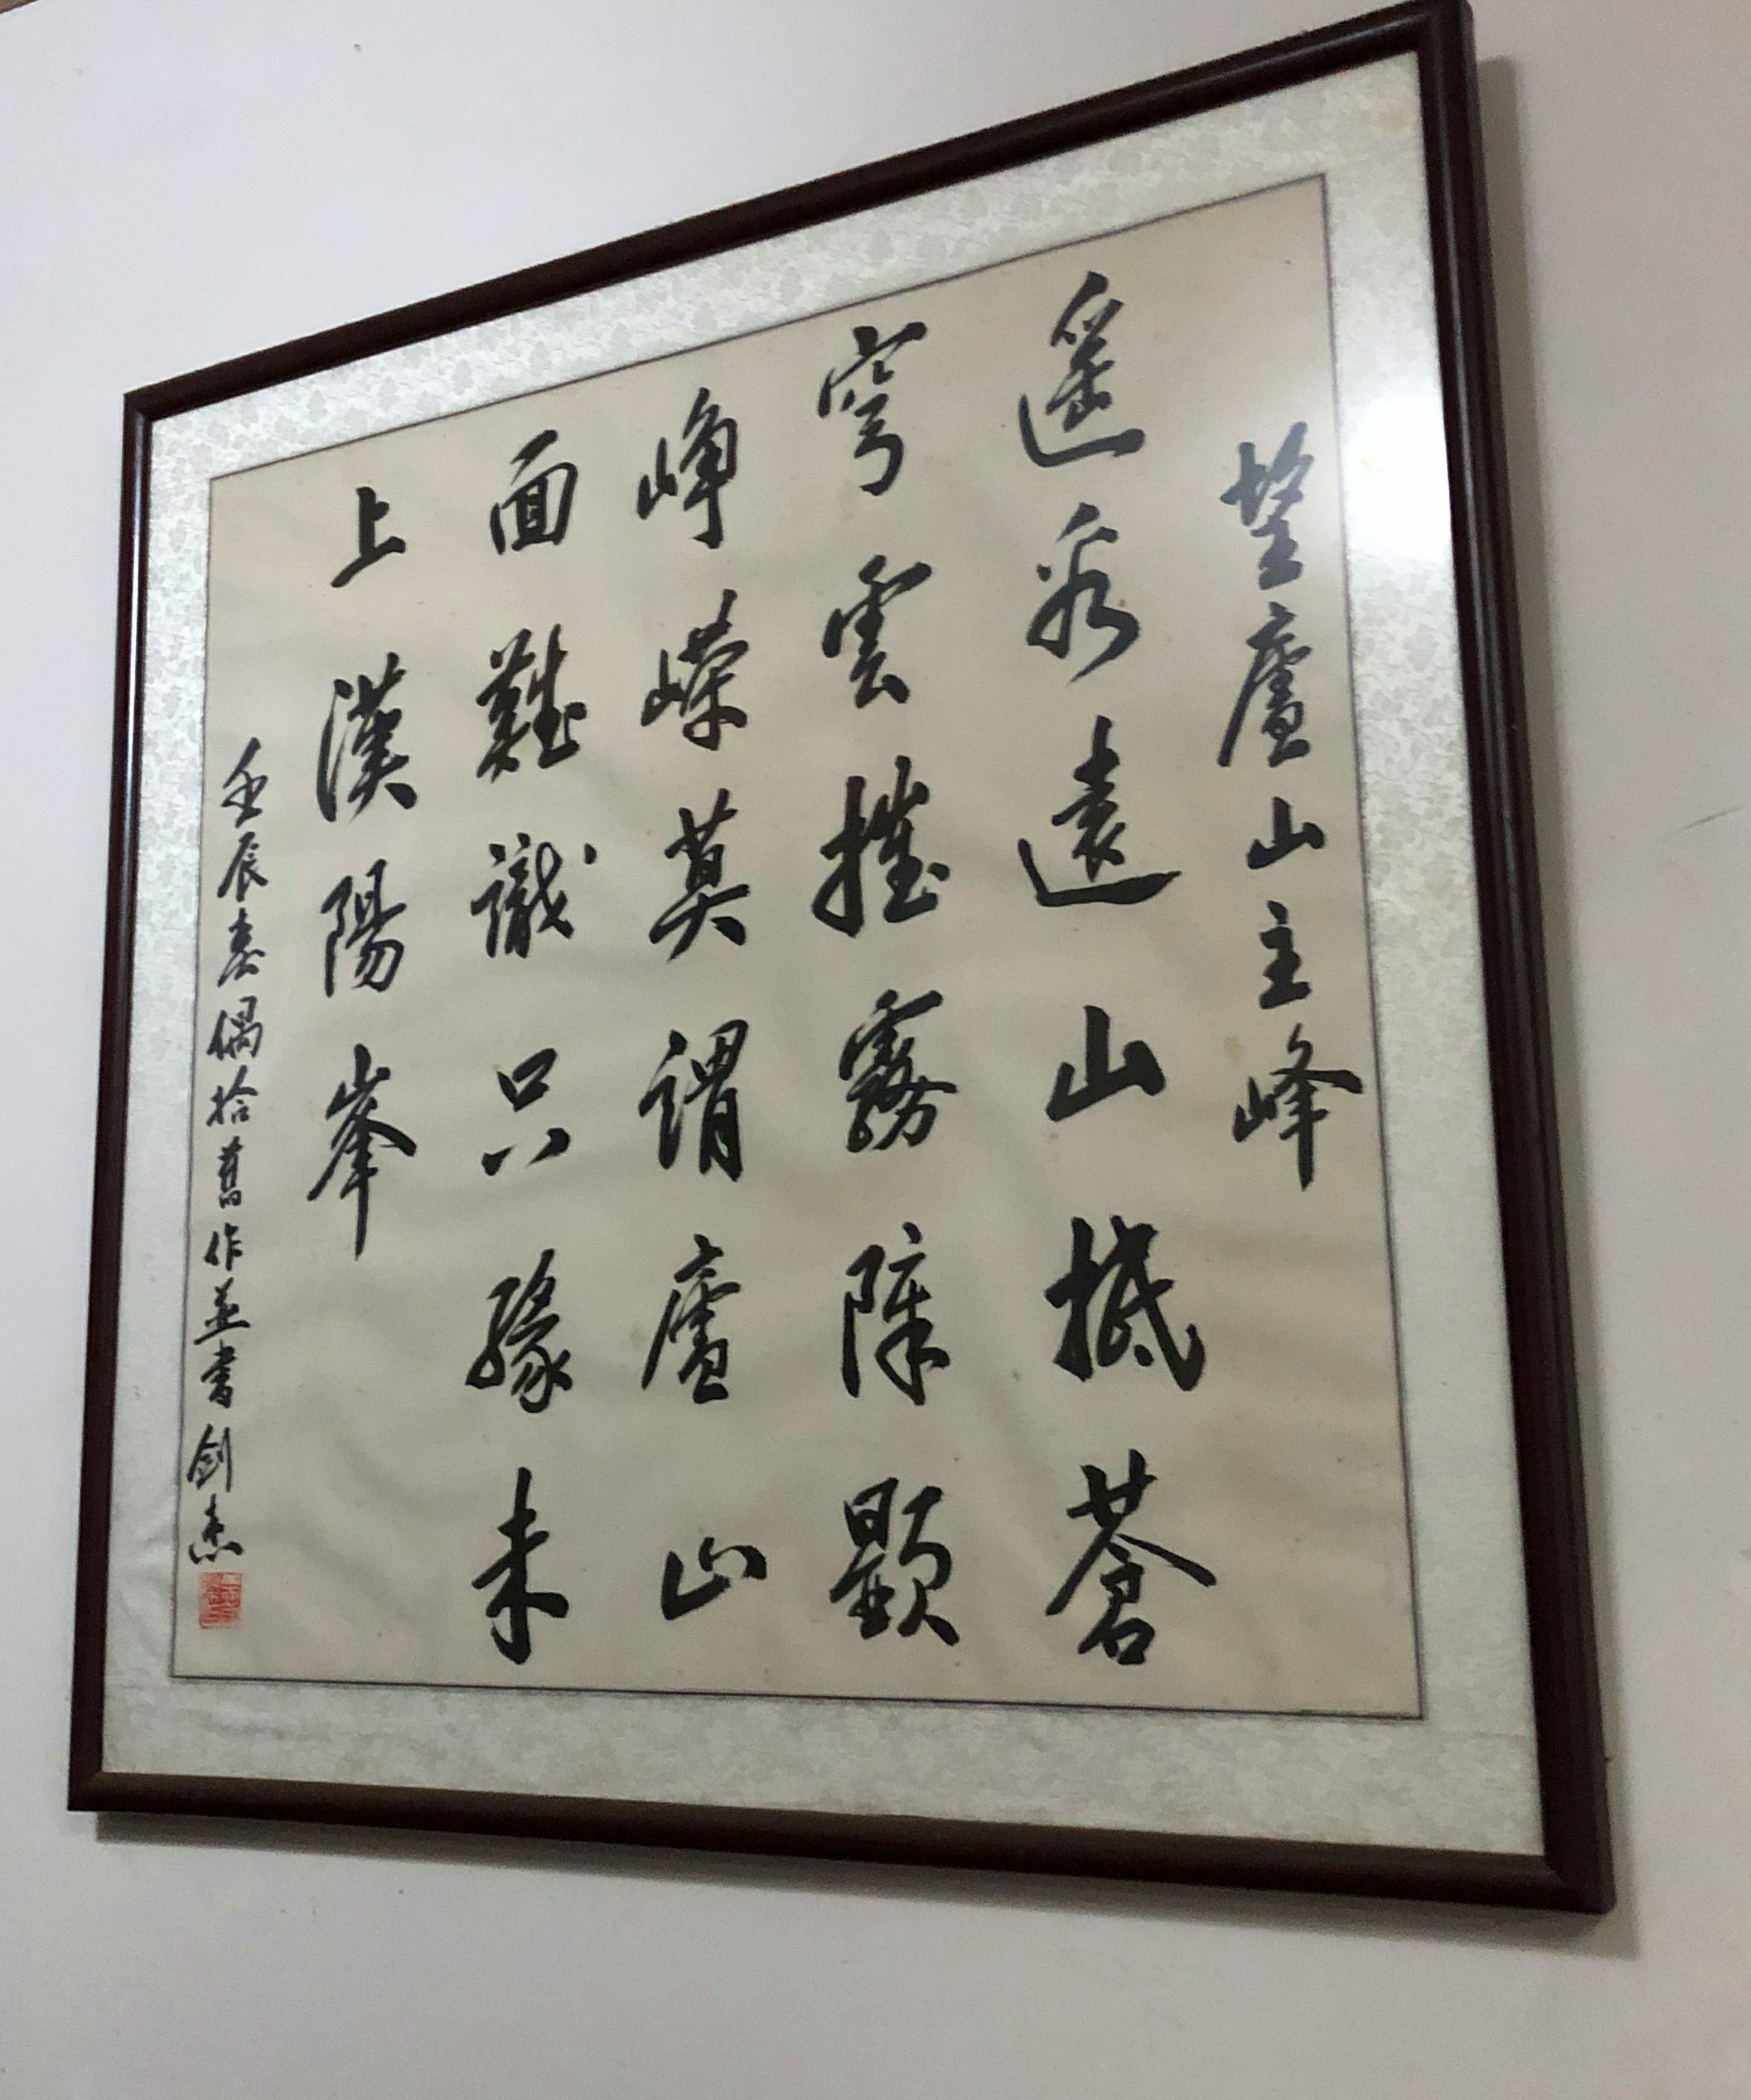 望廬山主峰
遥看遠山抵蒼
穹雲摧霧障顯
崢嶸莫謂廬山
面難識只緣未
上漢陽峯
壬辰春偶拾舊作並書劍杰